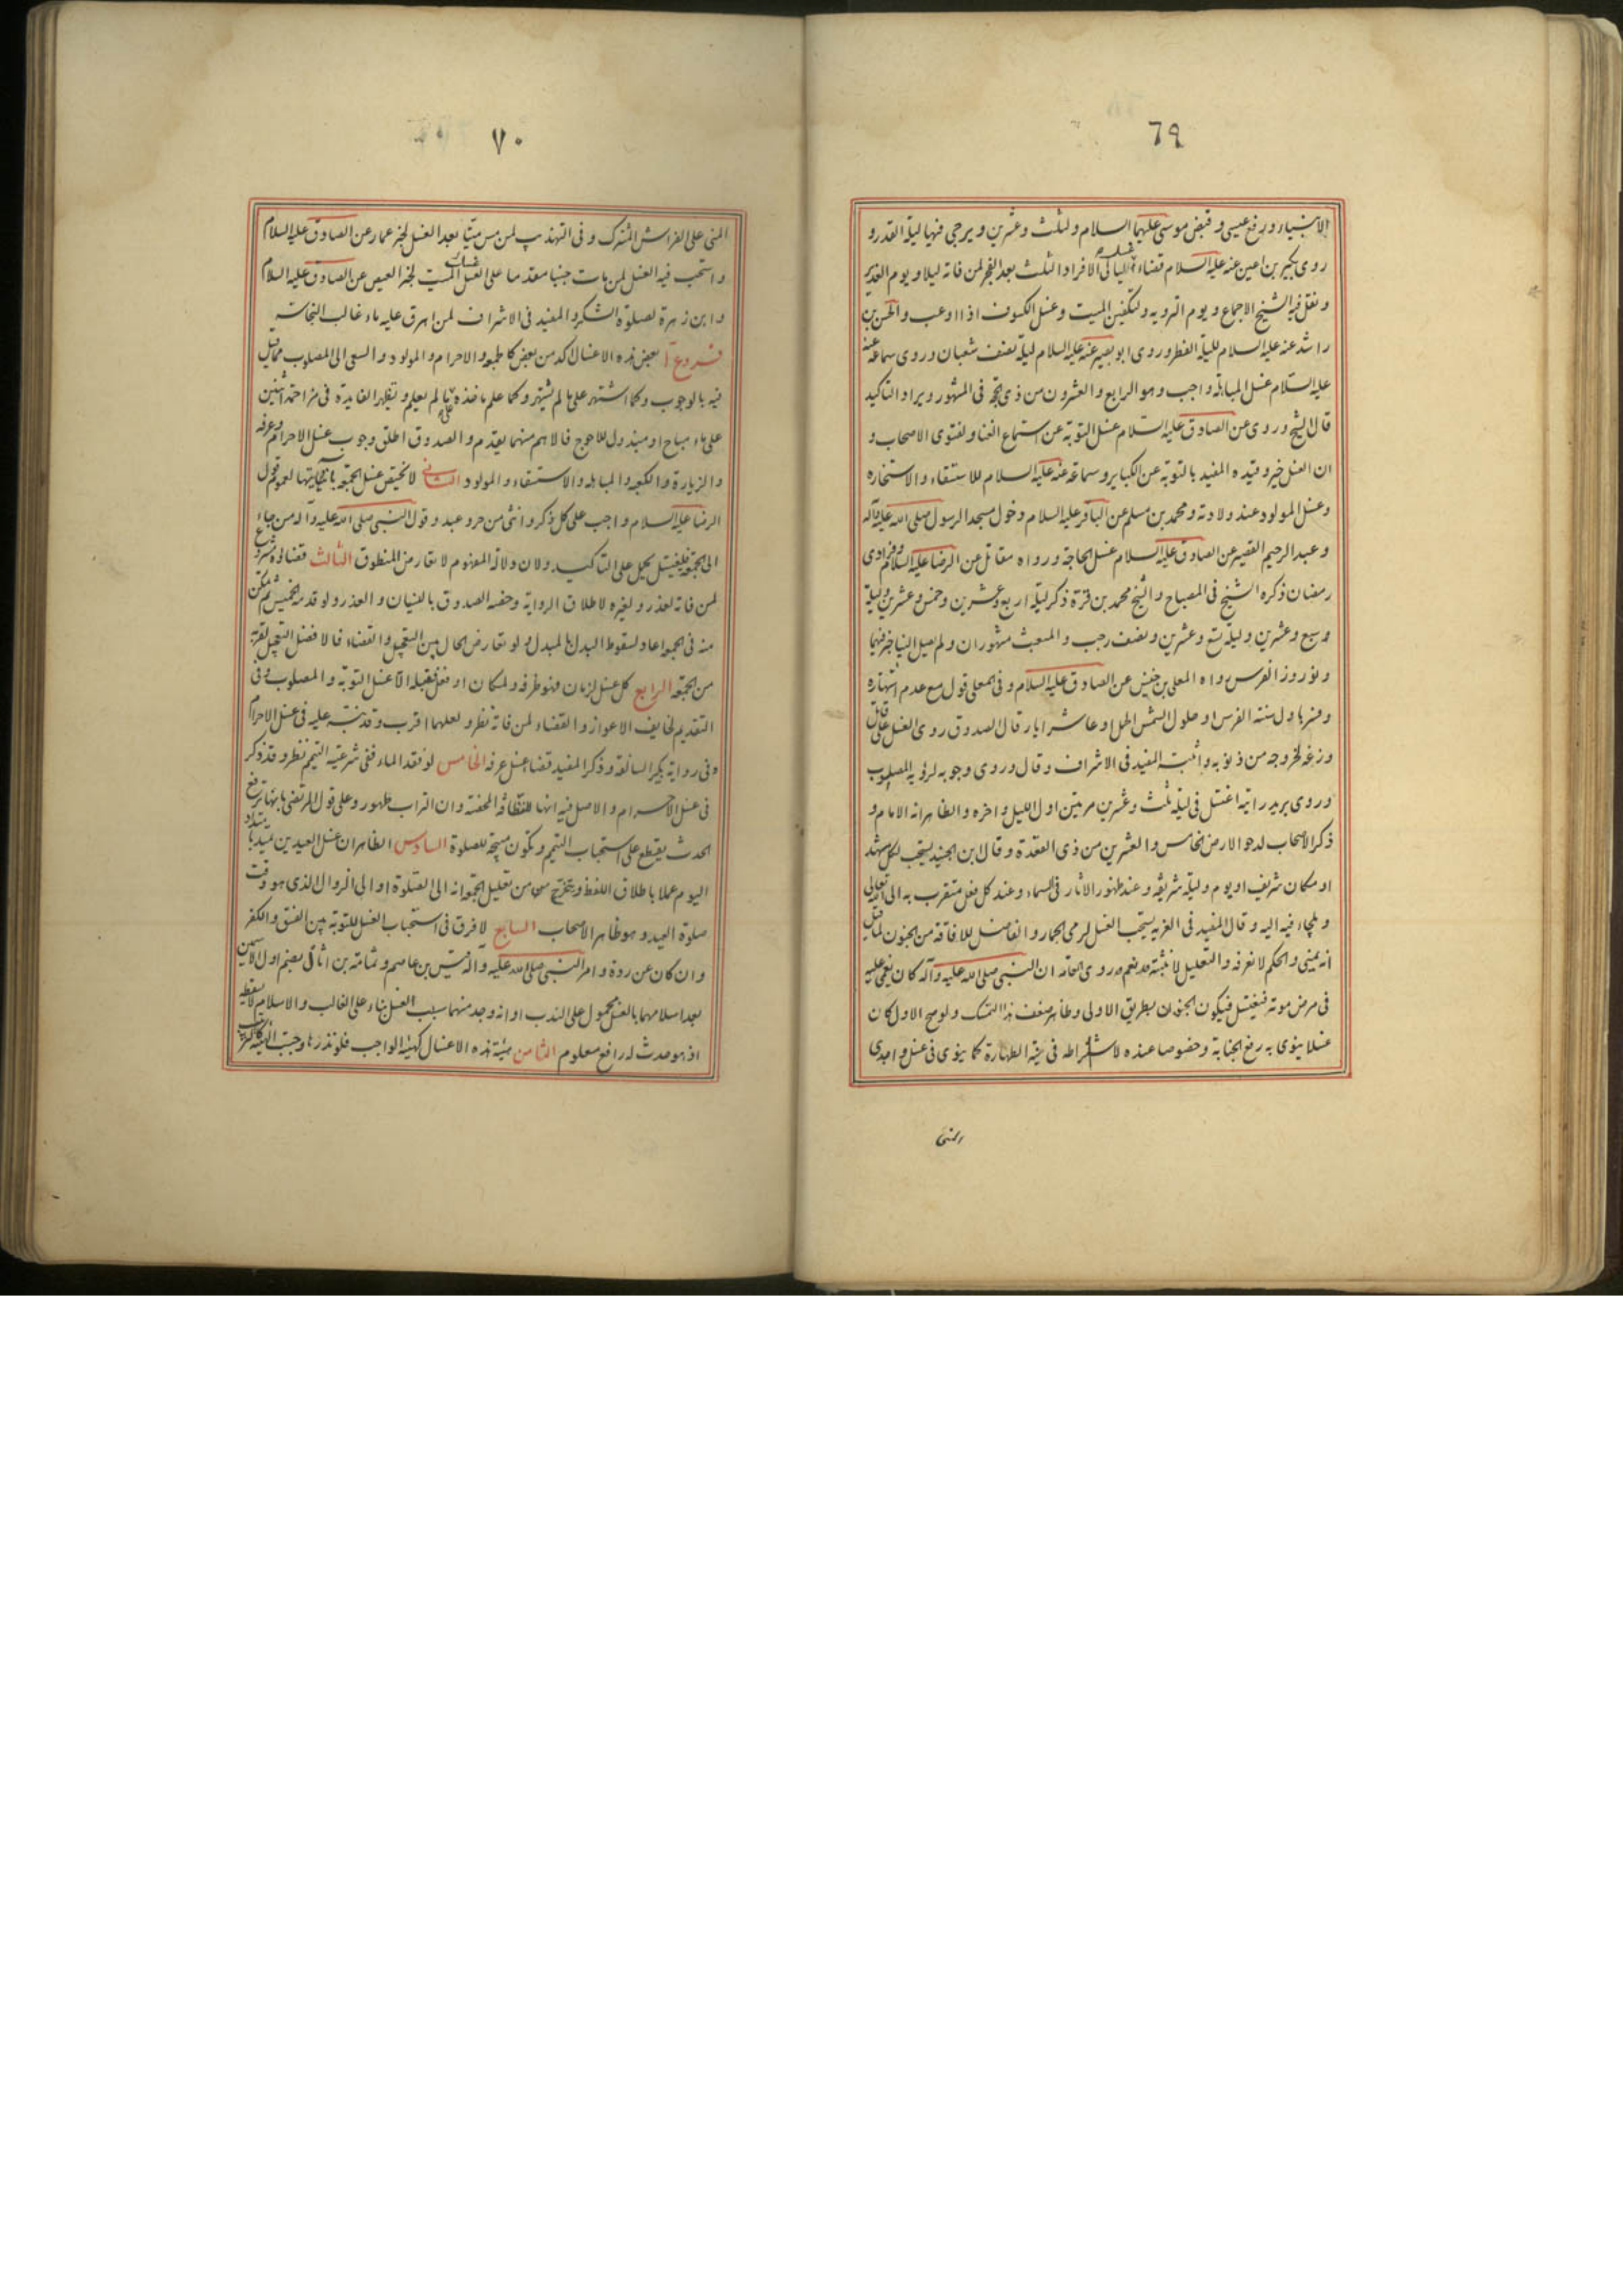 ٦٩
الانبياء ورفع عيسى وقبض موسى عليهما السلام وثلث وعشرين ويرجى فيها ليلة القدر و
روى بكير بن اعين عنه عليه السلام قضاء غسل ليالى الافراد الثلث بعد الفجر لمن فاته ليلا ويوم الغدير
ونقل فيه الشيخ الاجماع ويوم التروية ولتكفين الميت وغسل الكسوف اذا اوعب والحسن بن
راشد عنه عليه السلام لليلة الفطر وروى ابو بصير عنه عليه السلام ليلة نصف شعبان وروى سماعة عنه
عليه السلام غسل المباهلة واجب وهو الرابع والعشرون من ذى الحجة فى المشهور ويراد التاكيد
قال الشيخ وروى عن الصادق عليه السلام غسل التوبة عن استماع الغنا ولفتوى الاصحاب و
ان الغسل خير وقيده المفيد بالتوبة عن الكباير وسماعة عنه عليه السلام للاستسقاء والاستخارة
وغسل المولود عند ولادته ومحمد بن مسلم عن الباقر عليه السلام دخول مسجد الرسول صلى الله عليه وآله
وعبد الرحيم القصير عن الصادق عليه السلام غسل الحاجة ورواه مقاتل عن الرضا عليه السلام وفرادى
رمضان ذكره الشيخ فى المصباح والشيخ محمد بن قرة ذكر ليلة اربع وعشرين وخمس وعشرين وليلة
سبع وعشرين وليلة تسع وعشرين ونصف رجب والمبعث مشهوران ولم يصل الينا خبر فيهما
ونوروز الفرس رواه المعلى بن خنيس عن الصادق عليه السلام وفى المعلى قول مع عدم اشتهاره
وفسر باول سنة الفرس او حلول الشمس الحمل او عاشر ايار قال الصدوق روى الغسل على قاتل
وزغة لخروجه من ذنوبه واثبته المفيد فى الاشراف وقال وروى وجوبه لرؤية المصلوب
وروى بريد رايته اغتسل فى ليلة ثلث وعشرين مرتين اول الليل واخره والظاهر انه الامام و
ذكر الاصحاب لدحو الارض الخامس والعشرين من ذى القعدة وقال ابن الجنيد يستحب لكل مشهد
او مكان شريف او يوم وليلة شريفة وعند ظهور الاثار فى السماء وعند كل فعل متقرب به الى الله تعالى
ويلجاء فيه اليه وقال المفيد فى الغرية يستحب الغسل لرمى الجمار والفاضل للافاقة من الجنون لما قيل
انه يمنى والحكم لا نعرفه والتعليل لا نثبته نعم روى العامة ان النبى صلى الله عليه وآله كان يغمى عليه
فى مرض موته فيغتسل فيكون الجنون بطريق الاولى وظاهر ضعف هذا التمسك ولو صح الاول كان
غسلا ينوى به رفع الجنابة وخصوصا عنده لاشتراطه فى نية الطهارة كما ينوى فى غسل واجدى
المنى
٧٠
المنى على الفراش المشترك وفى التهذيب لمن مس ميتا بعد الغسل لخبر عمار عن الصادق عليه السلام
واستحب فيه الغسل لمن مات جنبا مقدما على الغسل الميت لخبر العيص عن الصادق عليه السلام
وابن زهرة لصلوة الشكر والمفيد فى الاشراف لمن اهرق عليه ماء غالب النجاسة
فروع آ بعض هذه الاغسال اكد من بعض كالجمعة والاحرام والمولود والسعى الى المصلوب مما قيل
فيه بالوجوب وكما اشتهر على ما لم يشتهر وكما علم ماخذه على ما لم يعلم وتظهر الفايدة فى مزاحمة اثنين
على ماء مباح او مبذول للاحوج فالاهم منهما يقدم والصدوق اطلق وجوب غسل الاحرام وعرفة
والزيارة والكعبة والمباهلة والاستسقاء والمولود الثانى لا يختص غسل الجمعة باتيانها لعموم قول
الرضا عليه السلام واجب على كل ذكر وانثى من حر وعبد وقول النبى صلى الله عليه وآله من جاء
الى الجمعة فليغتسل يحمل على التاكيد ولان دلالة المفهوم لا تعارض المنطوق الثالث قضاؤه مشروع
لمن فاته لعذر ولغيره لاطلاق الرواية وخصه الصدوق بالنسيان والعذر ولو قدمه الخميس ثم تمكن
منه فى الجمعة اعاد لسقوط البدل بالمبدل ولو تعارض الحال بين التعجيل والقضاء فالافضل التعجيل لقربه
من الجمعة الرابع كل غسل لزمان فهو ظرفه ولمكان او فعل فقبله الا غسل التوبة والمصلوب وفى
التقديم لخايف الاعواز والقضاء لمن فاته نظر ولعلهما اقرب وقد نبه عليه فى غسل الاحرام
وفى رواية بكير السالفة وذكر المفيد قضاء غسل عرفة الخامس لو فقد الماء ففى شرعية التيمم نظر وقد ذكر
فى غسل الاحرام والاصل فيه انها للنظافة المحضة وان التراب طهور وعلى قول المرتضى بانها ترفع
الحدث يقطع على استحباب التيمم وتكون مبيحة للصلوة السادس الظاهر ان غسل العيدين يمتد بامتداد
اليوم عملا باطلاق اللفظ ويتخرج من تعليل الجمعة انه الى الصلوة او الى الزوال الذى هو وقت
صلوة العيد وهو ظاهر الاصحاب السابع لا فرق فى استحباب الغسل للتوبة بين الفسق والكفر
وان كان عن ردة وامر النبى صلى الله عليه وآله قيس بن عاصم وثمامة بن اثال
بعد اسلامهما بالغسل محمول على الندب او انه وجد منهما سبب الغسل بناء على الغالب والاسلام لا يسقطه
اذ هو حدث له رافع معلوم الثامن هيئة هذه الاغسال كهيئة الواجب فلو نذرها وجبت